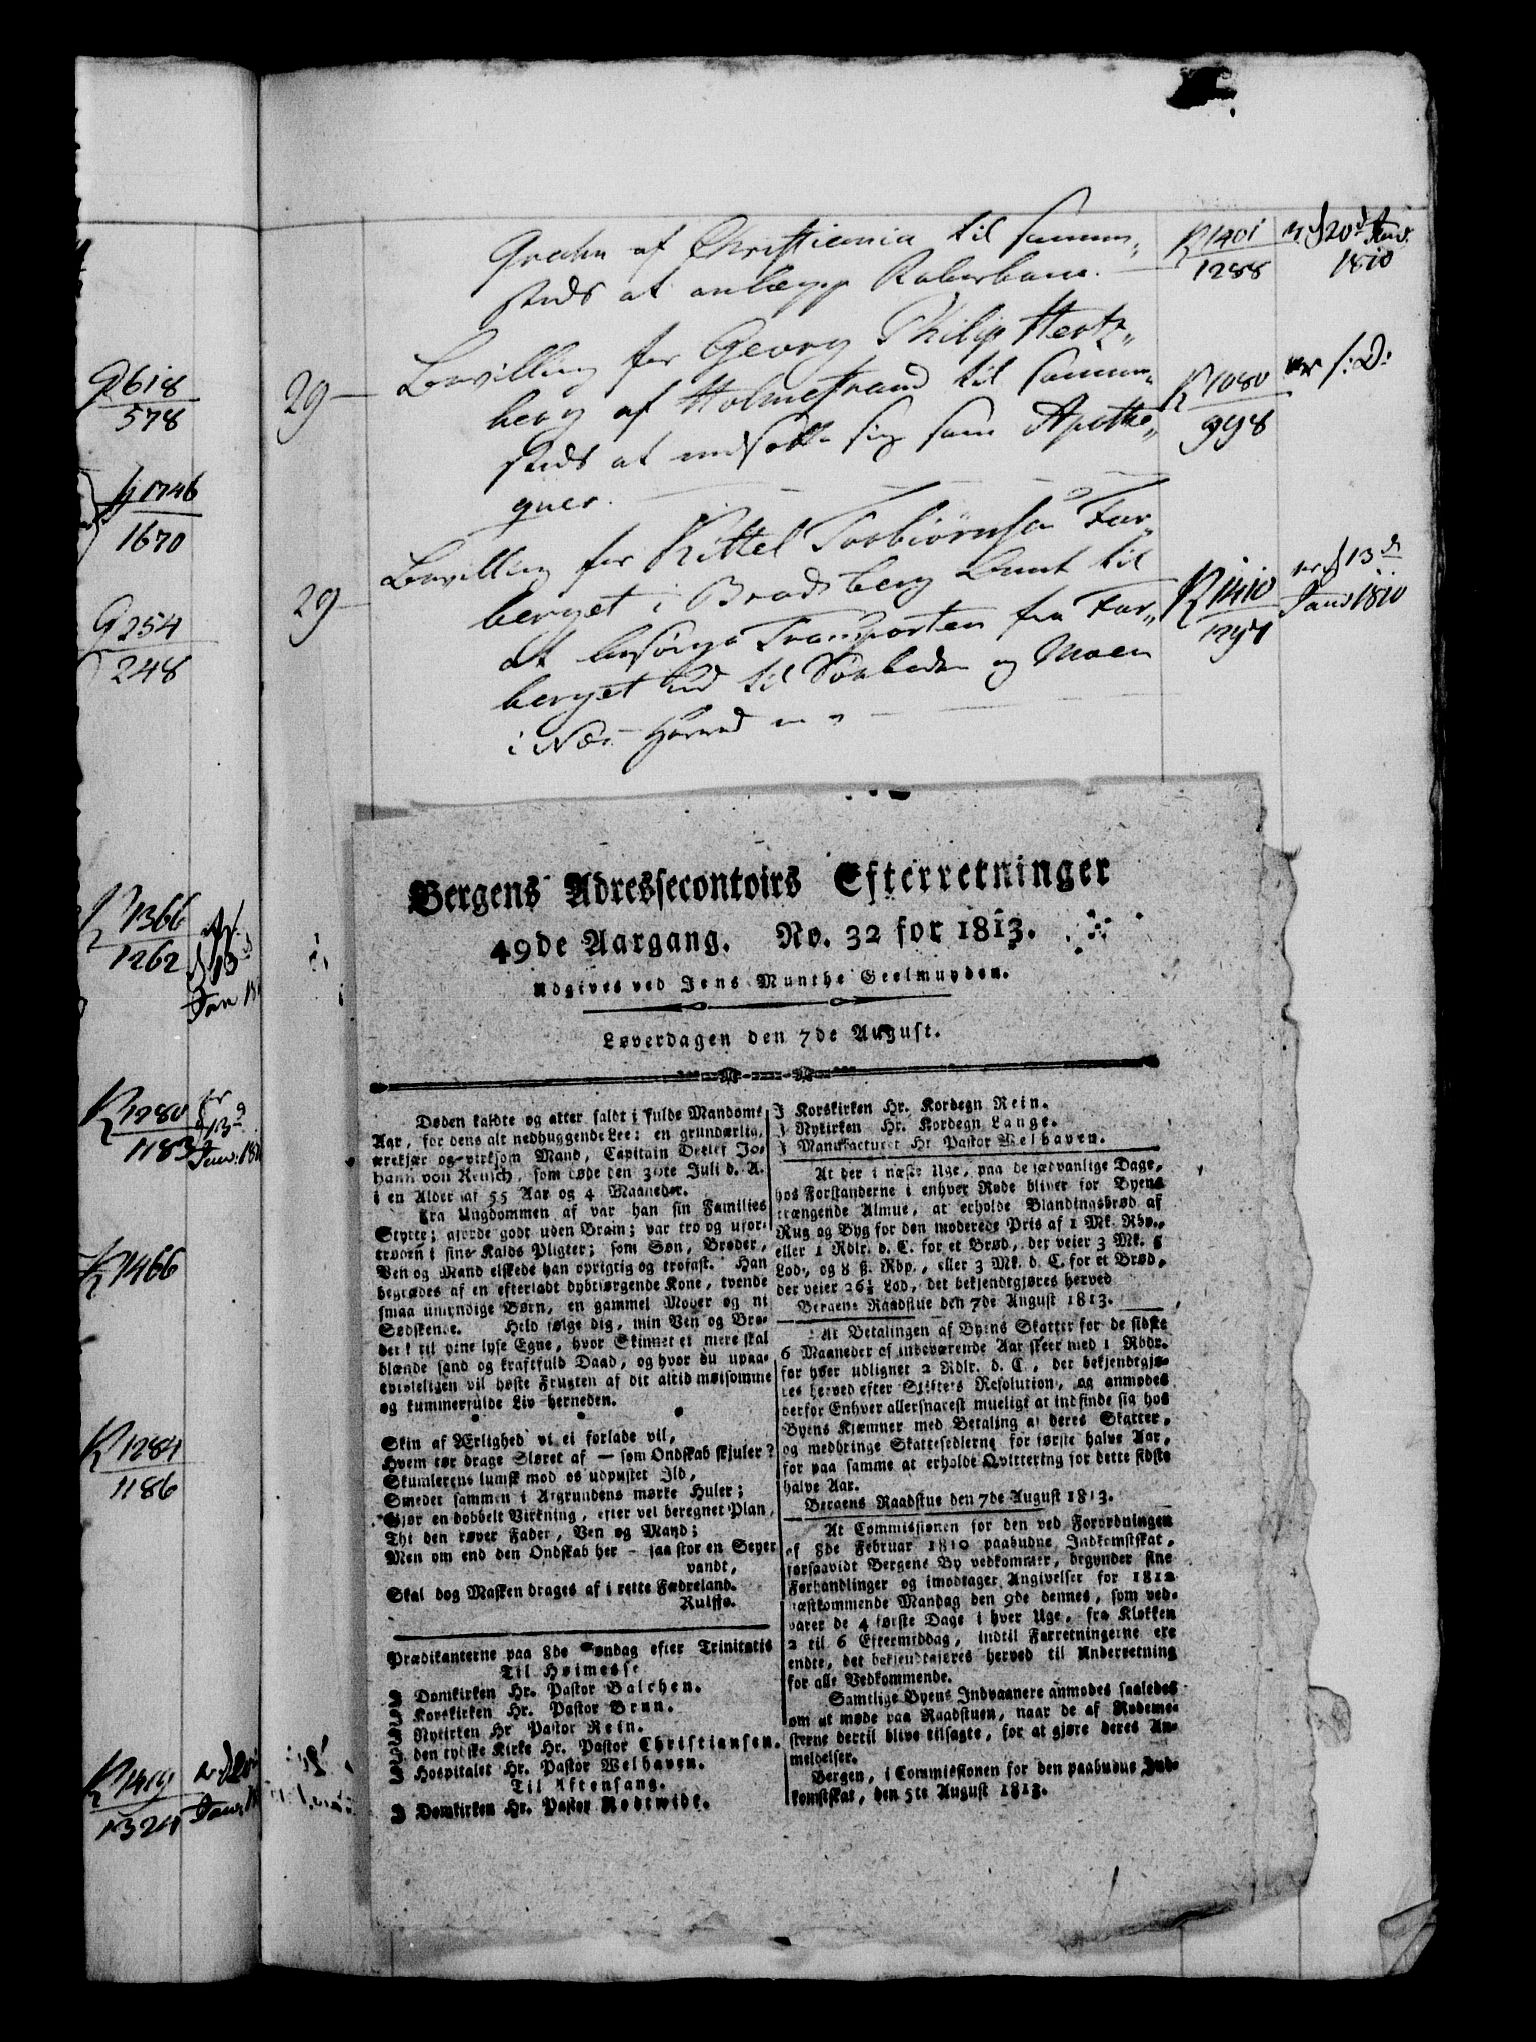 G 618
578
1746
1670
G 254
248
R 1366
1262
13d
Jan
R 1280
1183
13d
Janu: 18
R 1466
R 1284
1186
R 1419
1324
Janu
af Christiania til sammen„
steds at anlægge
R 1401
1288
20d Janv.
1810
29 — Bevilling for Georg Philip Hertz„
berg af Holmestrand til sammen„
steds at nedsætte sig som Apothe„
quer.
R 1080
998
s: D:
29 — Bevilling for Kittel Torbiörnsøn Far„
berget i Bradsberg Amt til
at besörge Transporten fra Far„
berget ud til og Moen
i Næs Herred
R 1410
1297
13d
Janv 1810
Bergens Adressecontoirs Efterretninger
49de Aargang. No. 32 for 1813.
Udgives ved Jens Munthe Geelmuyden.
Løverdagen den 7de August.
Døden kaldte og atter faldt i fulde Mandoms
Aar, for dens alt nedhuggende Lee: en grundærlig,
ærekjær og virksom Mand, Capitain Detlef Jo-
hann von Krusch, som døde den 30te Juli d. A.
i en Alder af 55 Aar og 4 Maaneder.
Fra Ungdommen af var han sin Families
Støtte; gjorde godt uden Bram; var tro og ufor-
trøden i sine Kalds Pligter; som Søn, Broder,
Ven og Mand elskede han oprigtig og trofast. Han
begrædes af en efterladt dybtsørgende Kone, tvende
smaa umyndige Børn, en gammel Moder og ni
Sødskende. Held følge dig, min Ven og Bro-
der! til hine lyse Egne, hvor Skinnet ei mere skal
blænde sand og kraftfuld Daad, og hvor du upaa-
tvivleligen vil høste Frugten af dit altid møisomme
og kummerfulde Liv herneden.
Skin af Ærlighed vi ei forlade vil,
Hvem tør drage Sløret af — som Ondskab skjuler?
Skumlerens lumsk mod os udpustet Ild,
Smedet sammen i Afgrundens mørke Huler;
Gjør en dobbelt Virkning, efter vel beregnet Plan,
Thi den røver Fader, Ven og Mand;
Men om end den Ondskab her — saa stor en Seyer
vandt,
Skal dog Masken drages af i rette Fædreland.
Rulffs.
Prædikanterne paa 8de Søndag efter Trinitatis
Til Høimesse
I Domkirken Hr. Pastor Balchen.
I Korskirken Hr. Pastor Brun.
I Nykirken Hr Pastor Rein.
I den tydske Kirke Hr. Pastor Christiansen.
I Hospitalet Hr. Pastor Welhaven.
Til Aftensang.
I Domkirken Hr. Pastor Rodtwidt.
I Korskirken Hr. Kordegn Rein.
I Nykirken Hr. Kordegn Lange.
I Manufacturet Hr Pastor Welhaven.
At der i næste Uge, paa de sædvanlige Dage,
hos Forstanderne i enhver Rode bliver for Byens
trængende Almue, at erholde Blandingsbrød af
Rug og Byg for den moderede Pris af 1 Mk. Rbp.,
eller 1 Rdlr. d. C. for et Brød, der veier 3 Mk. 5
Lod, og 8 ß. Rbp., eller 3 Mk. d. C. for et Brød,
der veier 26½ Lod, det bekjendtgjøres herved
Bergens Raadstue den 7de August 1813.
At Betalingen af Byens Skatter for de sidste
6 Maaneder af indeværende Aar skeer med 1 Rbdr.
for hver udlignet 2 Rdlr. d. C., det bekjendtgjø-
res herved efter Stiftets Resolution, og anmodes
derfor Enhver allersnarest mueligt at indfinde sig hos
Byens Kjæmner med Betaling af deres Skatter,
og medbringe Skattesedlerne for første halve Aar,
for paa samme at erholde Qvittering for dette sidste
halve Aar.
Bergens Raadstue den 7de August 1813.
At Commissionen for den ved Forordningen
af 8de Februar 1810 paabudne Indkomstskat,
forsaavidt Bergens By vedkommer, begynder sine
Forhandlinger og imodtager Angivelser for 1812
næstkommende Mandag den 9de dennes, som ved-
varer de 4 første Dage i hver Uge, fra Klokken
2 til 6 Eftermiddag, indtil Forretningerne ere
endte, det bekjendtgjøres herved til Underretning
for alle Vedkommende.
Samtlige Byens Indvaanere anmodes saaledes
om at møde paa Raadstuen, naar de af Rodeme-
sterne dertil blive tilsagte, for at gjøre deres An-
meldelser.
Bergen, i Commissionen for den paabudne Ind-
komstskat, den 5te August 1813.